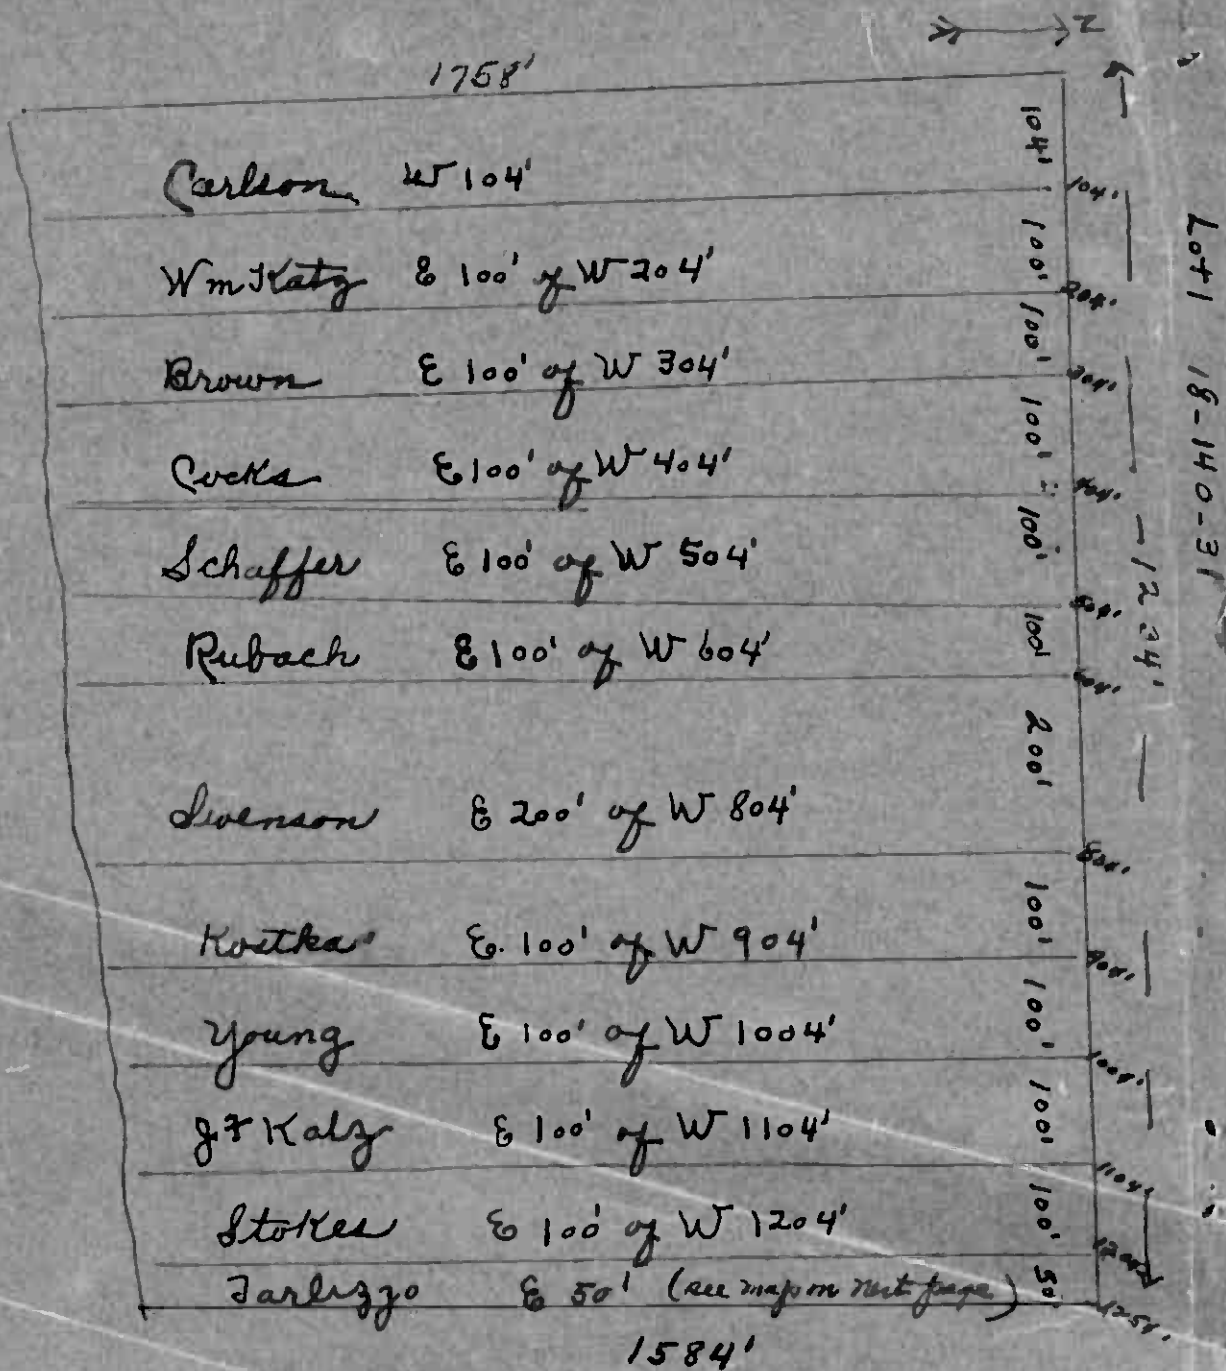 N
1758'
Carlson W 104' 104' 104'
Wm Katz E 100' of W 204' 100' 204'
Brown E 100' of W 304' 100' 304'
Cocks E 100' of W 404' 100' 404'
Schaffer E 100' of W 504' 100' 504'
Rubach E 100' of W 604' 100' 604'
Swenson E 200' of W 804' 200' 804'
Kostka E. 100' of W 904' 100' 904'
Young E 100' of W 1004' 100' 1004'
J F Katz E 100' of W 1104' 100' 1104'
Stokes E 100' of W 1204' 100' 1204'
Tarlizzo E 50' (see map on next page) 50' 1254'
1584'
Lot 1 18-140-31